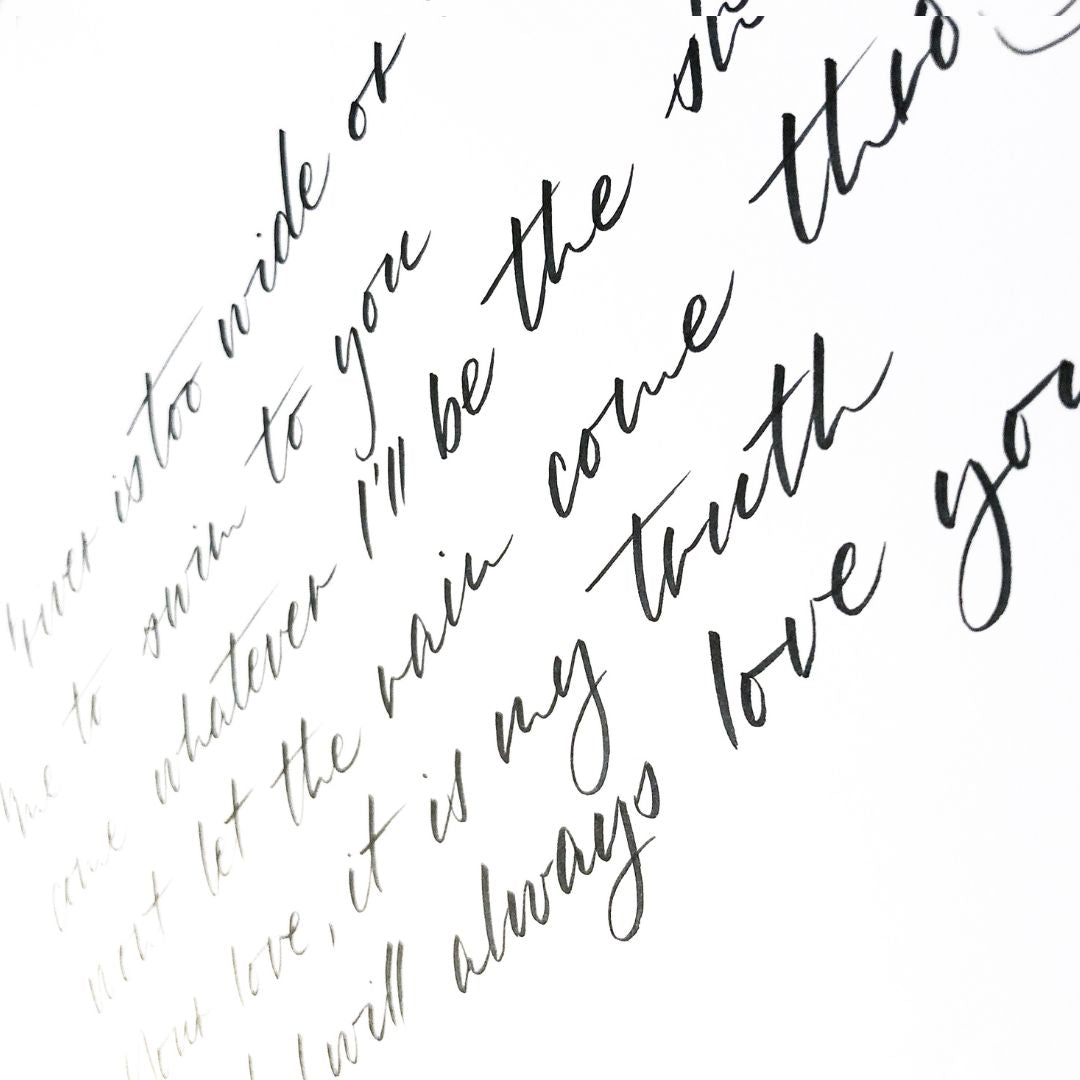 river is too wide or
me to swim to you
come whatever I'll be the
won't let the rain come thro
your love, it is my truth
I will always love you